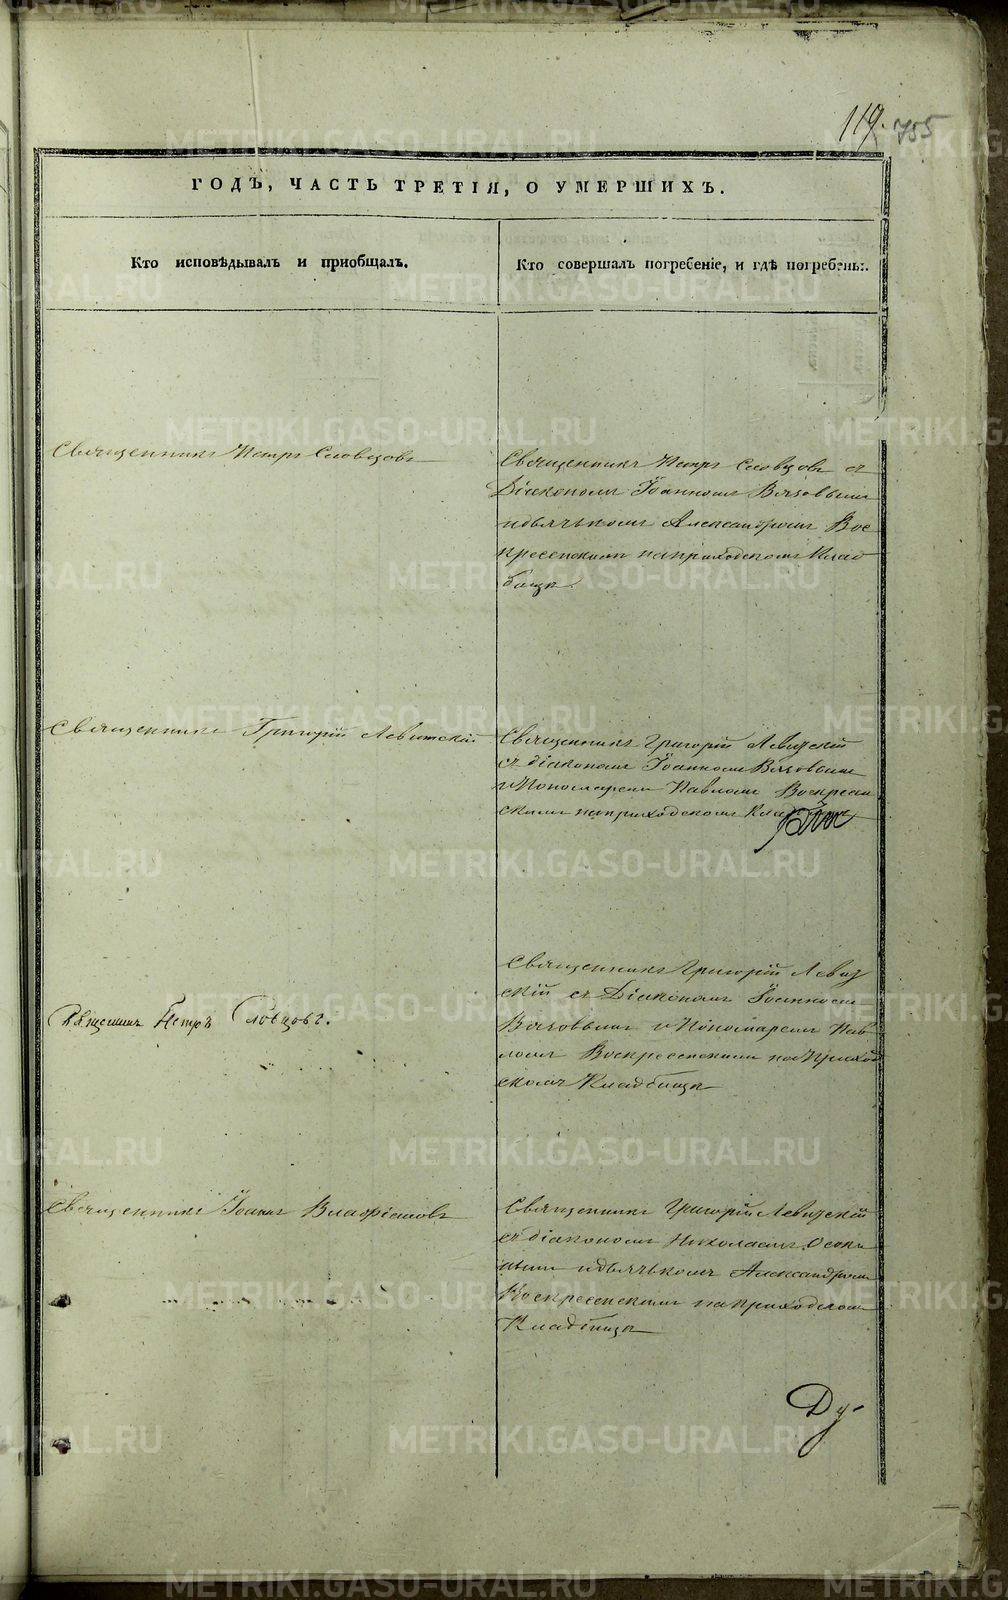 119. 755
ГОДЪ, ЧАСТЬ ТРЕТІЯ, О УМЕРШИХЪ.
Кто исповѣдывалъ и пріобщалъ.
Кто совершалъ погребеніе, и гдѣ погребены.
Священникъ Петръ Словцовъ
Священникъ Петръ Словцовъ съ
Діакономъ Іоанномъ Вязовымъ
идьячькомъ Александромъ Вос
кресенскимъ наприходскомъ Клад
бищѣ
Священникъ Григорій Левитскій
Священникъ Григорій Левицкій
съ діакономъ Іоанномъ Вязовымъ
и Пономаремъ Павломъ Воскресен
скимъ наприходскомъ
Священникъ Петръ Словцовъ.
Священникъ Григорій Левиц
скій съ Діакономъ Іоанномъ
Вязовымъ и Пономаремъ Пав
ломъ Воскресенскимъ на Приход
скомъ Кладбищѣ
Священникъ Іоаннъ
Священникъ Григорій Левицскій
съ діакономъ Николаемъ
идьячькомъ Александромъ
Воскресенскимъ наприходском
Кладбищѣ
Ду-
METRIKI.GASO-URAL.RU